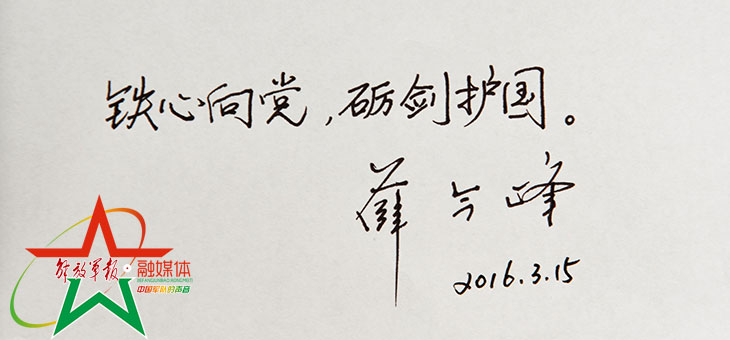 铁心向党，砺剑护国。
薛今峰
2016.3.15
解放军报 融媒体
JIEFANGJUNBAO RONGMEITI
中国军队的声音